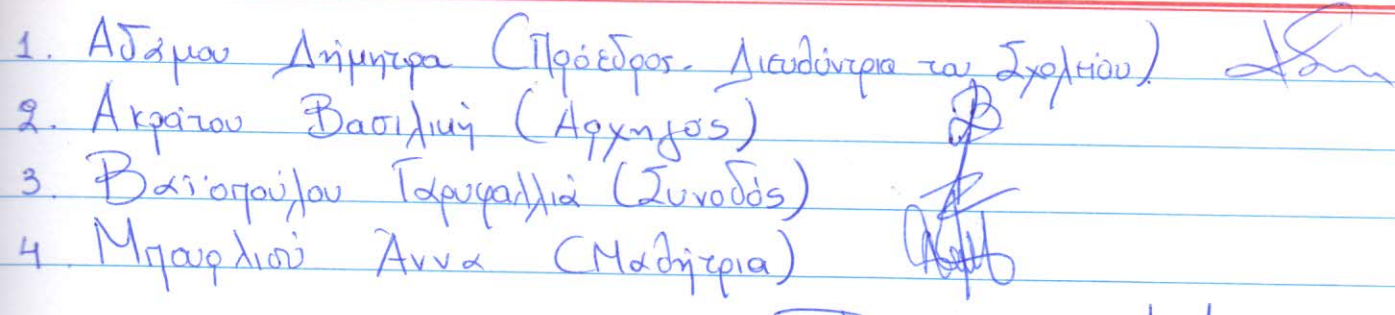 1. Αδάμου Δήμητρα (Πρόεδρος - Διευθύντρια του Σχολείου)
2. Ακράτου Βασιλική (Αρχηγός)
3. Βαϊοπούλου Γαρυφαλλιά (Συνοδός)
4. Μπαρλιού Άννα (Μαθήτρια)